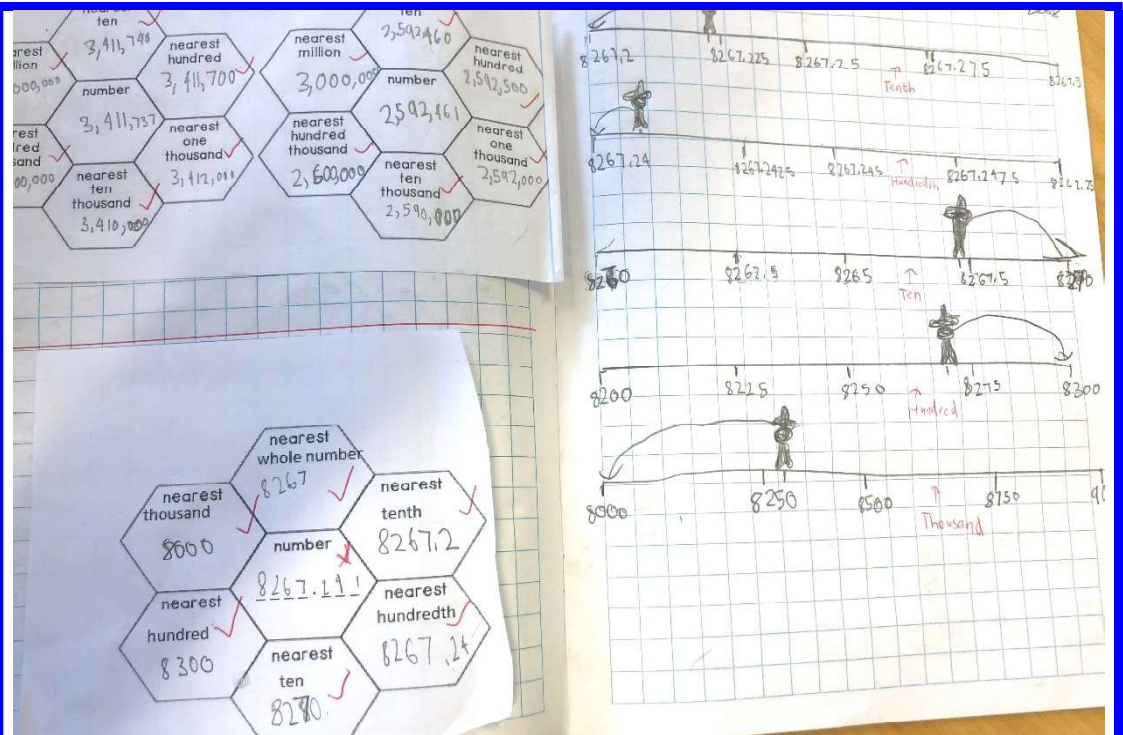 ten
3,411,740
nearest
hundred
3,411,700
number
3,411,737
nearest
one
thousand
3,412,000
nearest
ten
thousand
3,410,000
nearest
million
3,000,000
ten
2,592,460
nearest
hundred
2,592,500
number
2,592,461
nearest
hundred
thousand
2,600,000
nearest
one
thousand
2,592,000
nearest
ten
thousand
2,590,000
nearest
whole number
8267
nearest
thousand
8000
nearest
tenth
8267.2
number
nearest
hundred
8300
nearest
hundredth
8267.24
nearest
ten
8270.
8267.2 8267.225 8267.25 8267.275 8267.3
Tenth
8267.24 8267.2425 8267.245 8267.2475
Hundredth
8260 8262.5 8265 8267.5 8270
Ten
8200 8225 8250 8275 8300
Hundred
8000 8250 8500 8750
Thousand